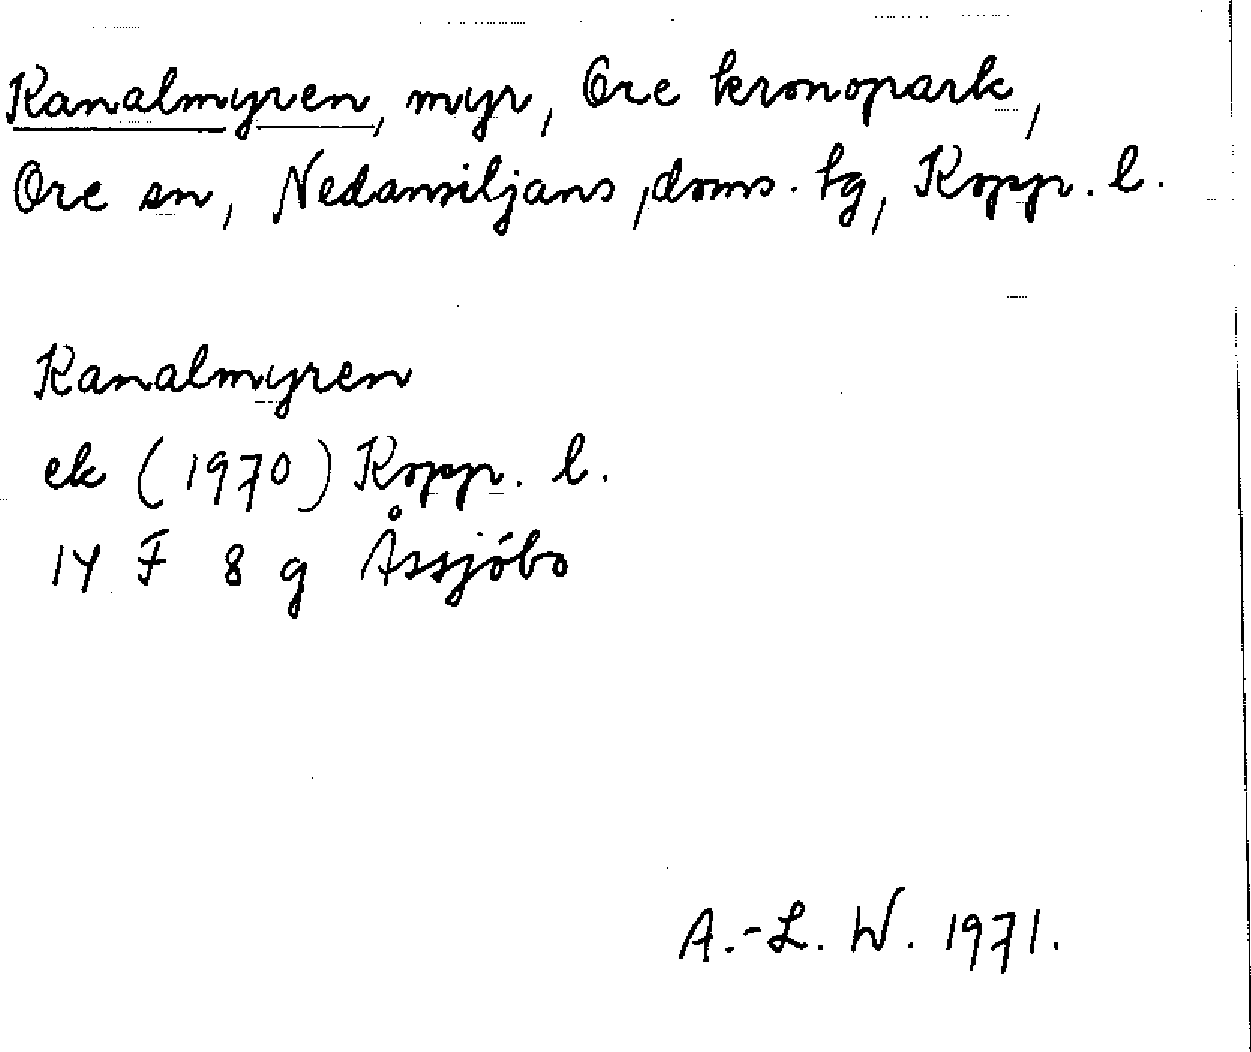 Kanalmyren, myr, Ore kronopark,
Ore sn, Nedansiljans doms. tg, Kopp. l.
Kanalmyren
ek (1970) Kopp. l.
14 F 8 g Åssjöbo
A.-L. W. 1971.